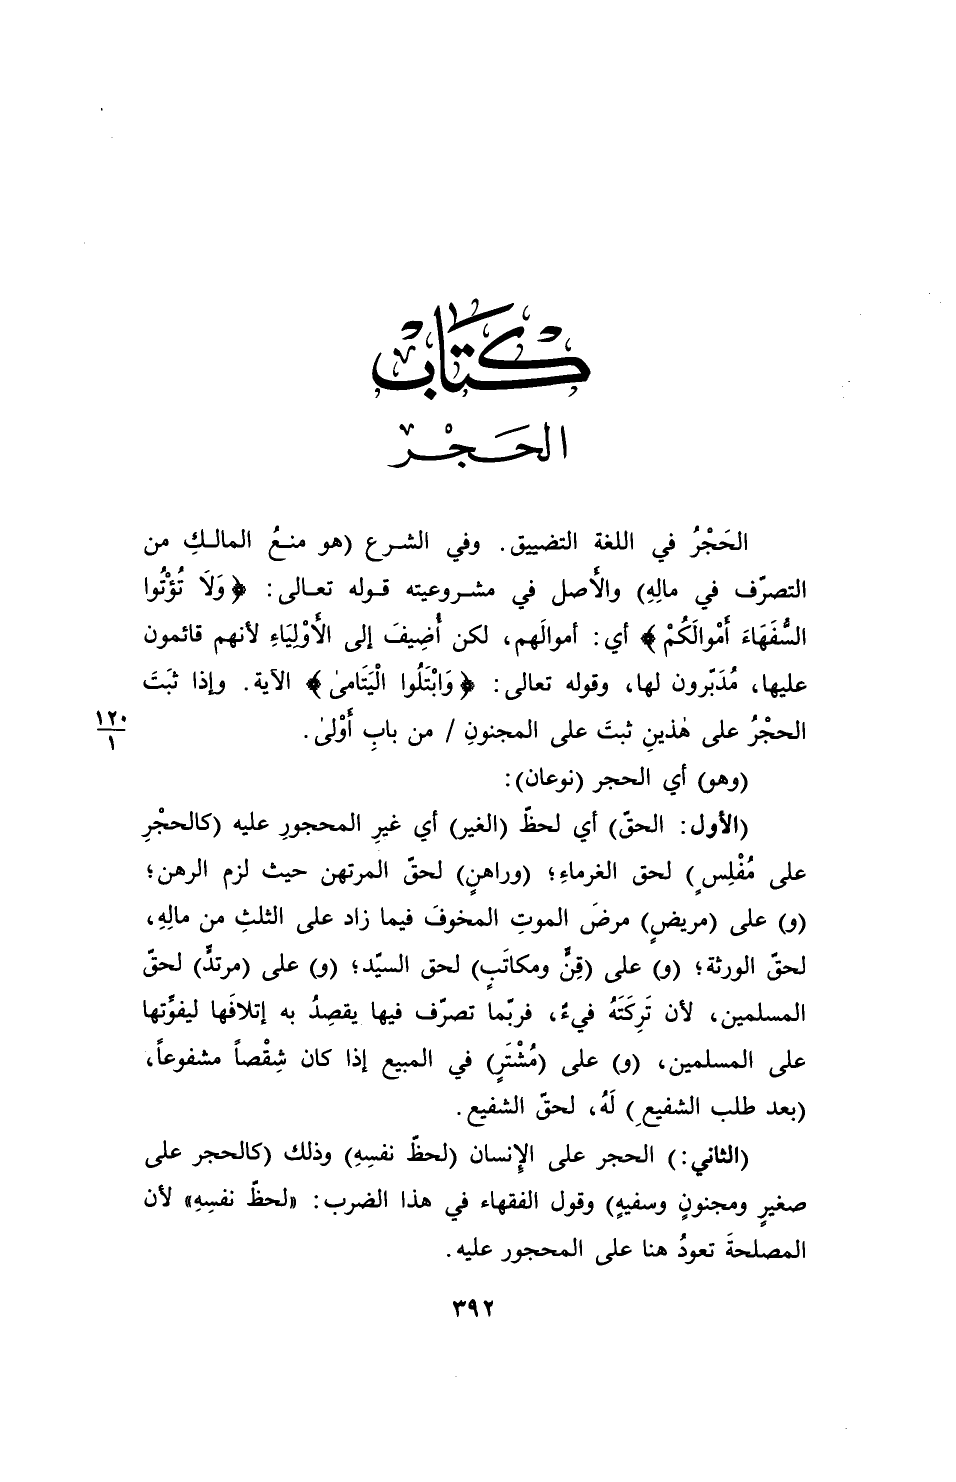 كتاب
الحَجْر
الحَجْرُ في اللغة التضييق. وفي الشرع (هو منعُ المالكِ من
التصرّف في مالِهِ) والأَصل في مشروعيته قوله تعالى: ﴿وَلَا تُؤْتُوا
السُّفَهَاءَ أَمْوالَكُمْ﴾ أي: أموالَهم، لكن أُضِيفَ إلى الأَوْلِيَاءِ لأنهم قائمون
عليها، مُدَبّرون لها، وقوله تعالى: ﴿وَابْتَلُوا الْيَتَامىٰ﴾ الآية. وإذا ثبَتَ
الحجْرُ على هٰذينِ ثبتَ على المجنونِ / من بابِ أَوْلىٰ.
١٢٠
١
(وهو) أي الحجر (نوعان):
(الأول: الحقّ) أي لحظّ (الغير) أي غيرِ المحجورِ عليه (كالحجْرِ
على مُفْلِسٍ) لحق الغرماءِ؛ (وراهنٍ) لحقّ المرتهن حيث لزم الرهن؛
(و) على (مريضٍ) مرضَ الموتِ المخوفَ فيما زاد على الثلثِ من مالِهِ،
لحقّ الورثة؛ (و) على (قِنٍّ ومكاتَبٍ) لحق السيّد؛ (و) على (مرتدٍّ) لحقّ
المسلمين، لأن تَرِكَتَهُ فيءٌ، فربّما تصرّف فيها يقصِدُ به إتلافَها ليفوِّتها
على المسلمين، (و) على (مُشْتَرٍ) في المبيع إذا كان شِقْصاً مشفوعاً،
(بعد طلب الشفيعِ) لَهُ، لحقّ الشفيع.
(الثاني:) الحجر على الإنسان (لحظّ نفسِهِ) وذلك (كالحجر على
صغيرٍ ومجنونٍ وسفيهٍ) وقول الفقهاء في هذا الضرب: «لحظّ نفسِهِ» لأن
المصلحةَ تعودُ هنا على المحجور عليه.
٣٩٢